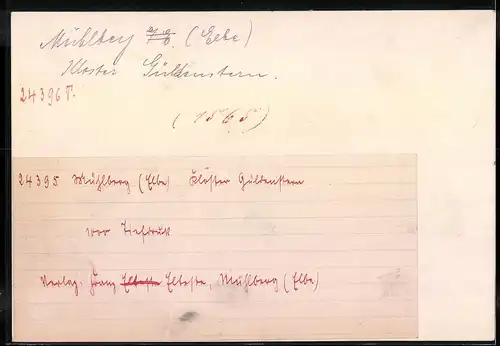 Mühlberg a/E. (Elbe)
Kloster Güldenstern.
24396 T.
(1565)
24395 Mühlberg (Elbe) Kloster Güldenstern
vor Tiefdruck
Verlag: Franz Elteste Elteste, Mühlberg (Elbe)